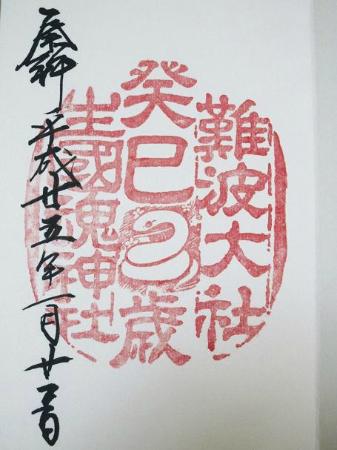 難波大社
癸巳歳
生國魂神社
奉拝 平成廿五年一月廿一日